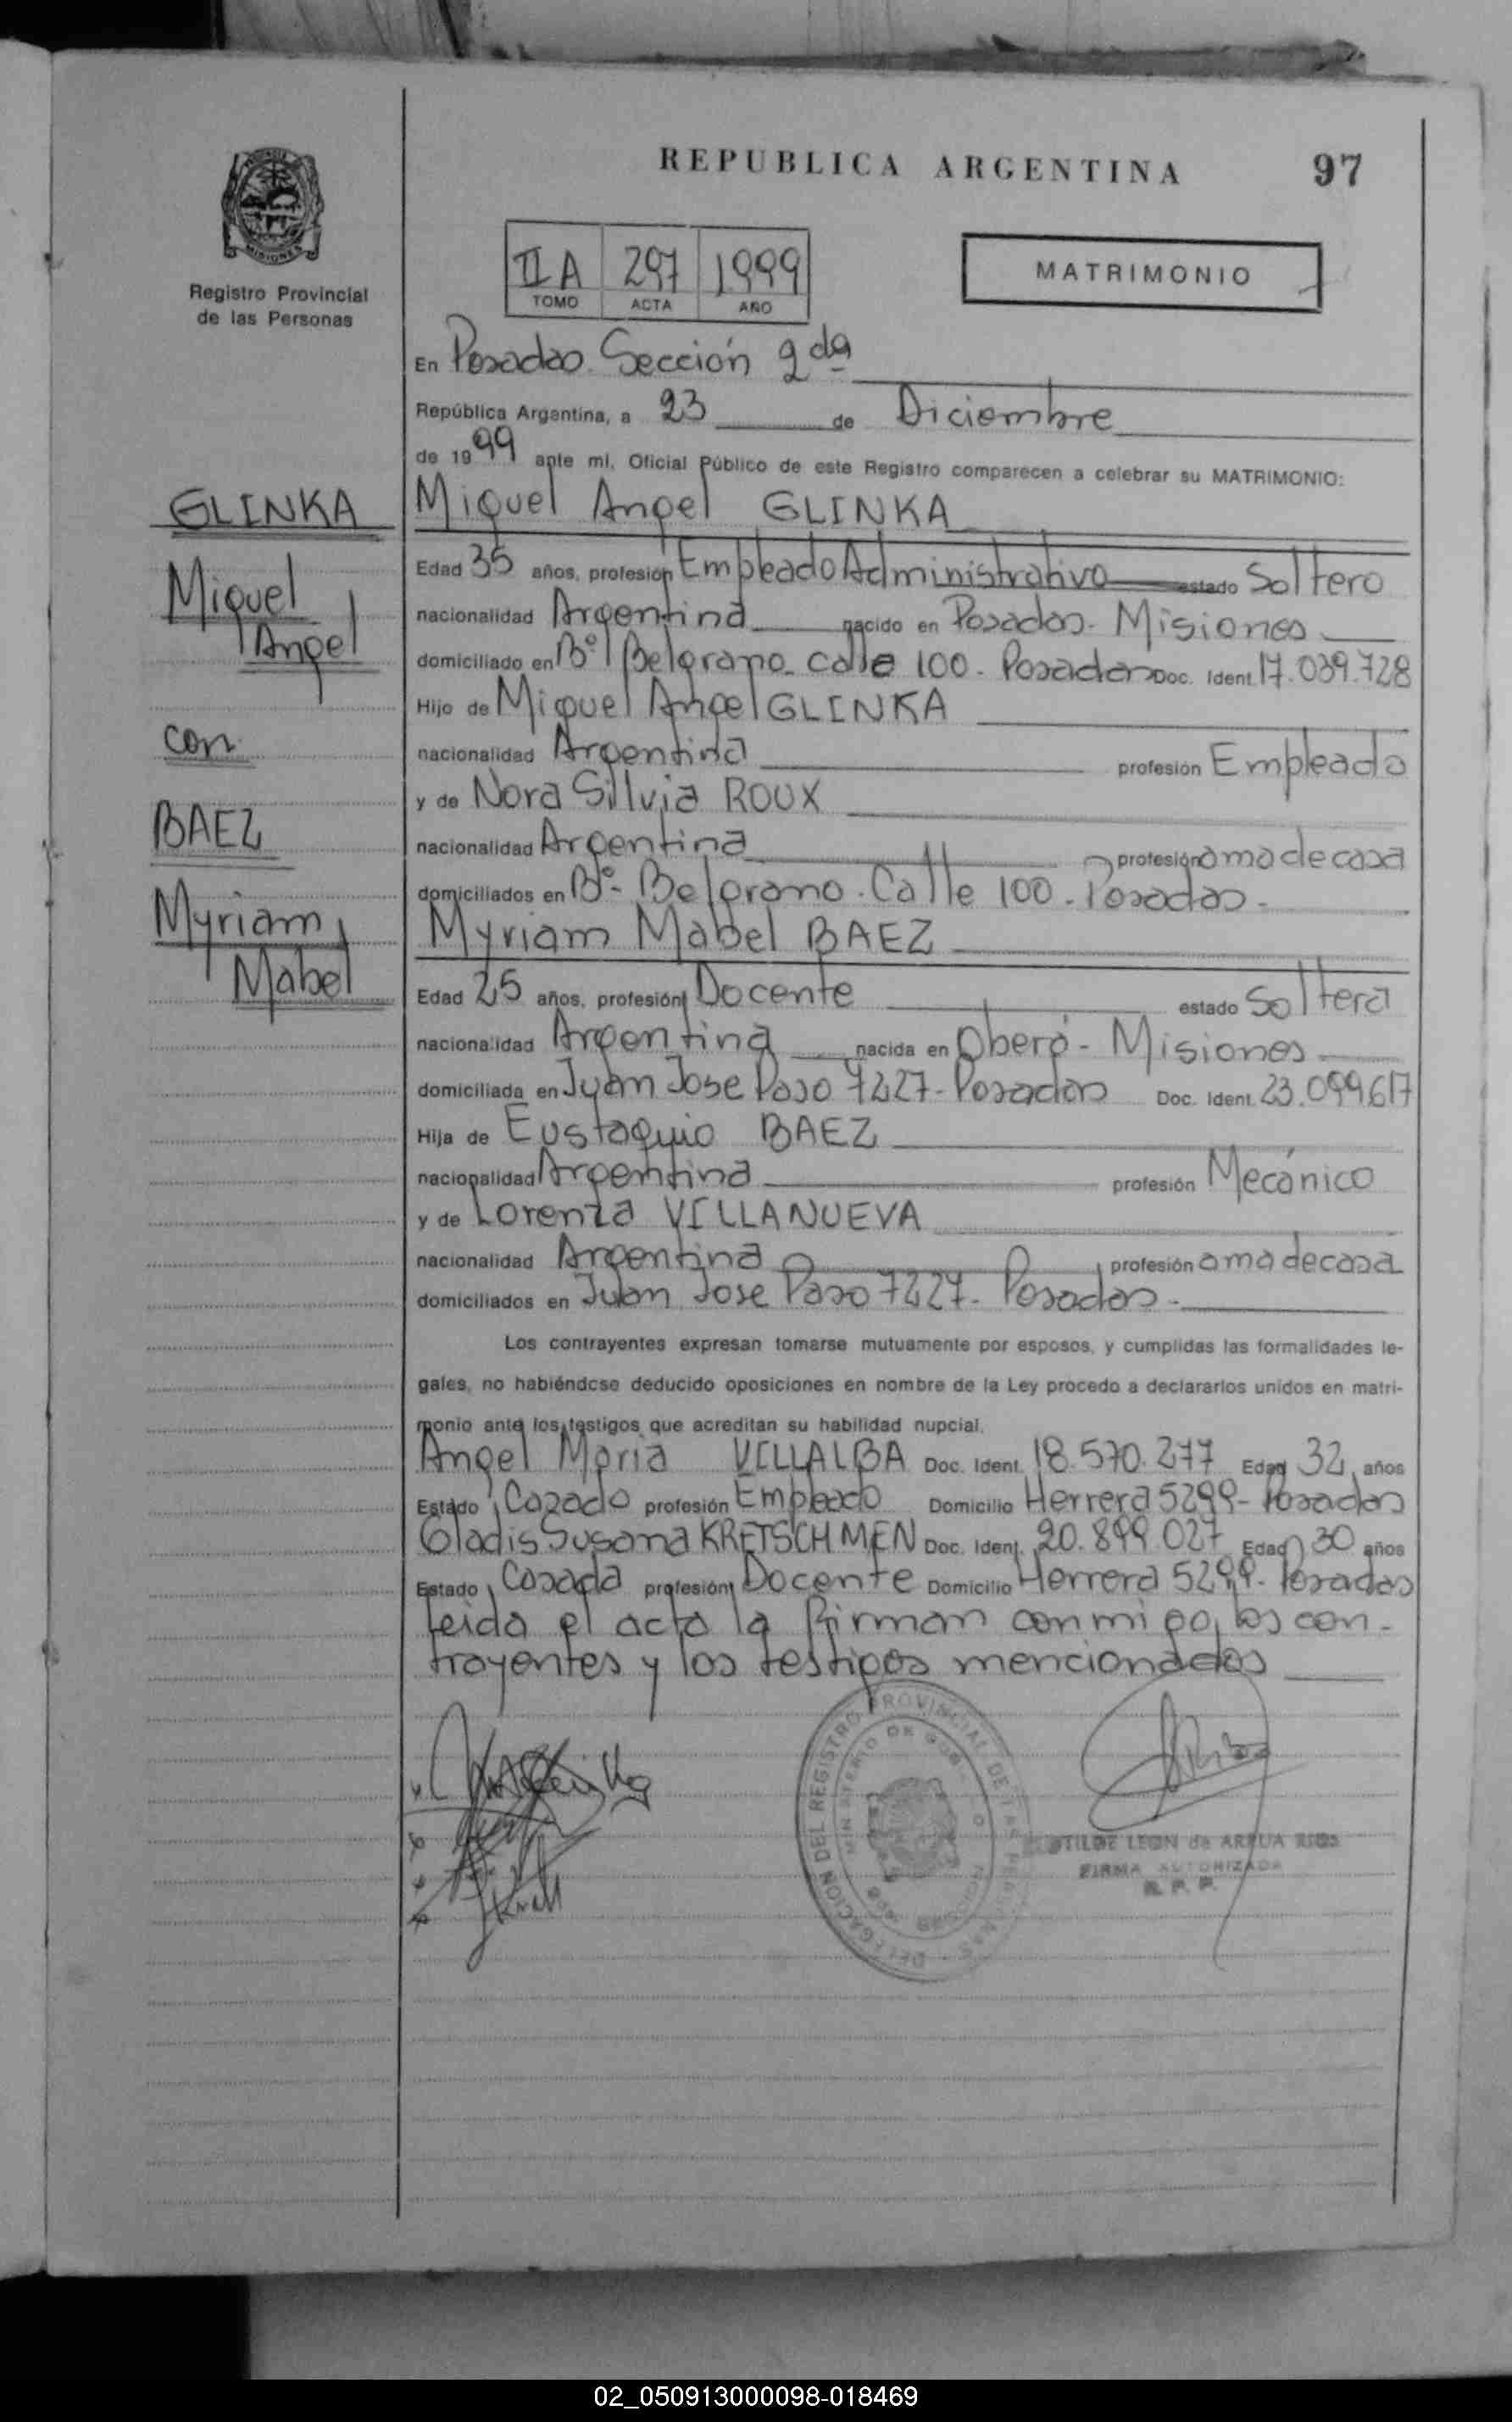 REPUBLICA ARGENTINA 97
MISIONES
Registro Provincial
de las Personas
II A 297 1999
TOMO ACTA AÑO
MATRIMONIO
En Posadas. Sección 2da
República Argentina, a 23 de Diciembre
de 1999 ante mi, Oficial Público de este Registro comparecen a celebrar su MATRIMONIO:
GLINKA
Miguel
Angel
con
BAEZ
Myriam
Mabel
Miguel Angel GLINKA
Edad 35 años, profesión Empleado Administrativo estado Soltero
nacionalidad Argentina nacido en Posadas - Misiones
domiciliado en Bº Belgrano - calle 100 - Posadas Doc. Ident. 17.039.728
Hijo de Miguel Angel GLINKA
nacionalidad Argentina profesión Empleado
y de Nora Sillvia ROUX
nacionalidad Argentina profesión ama de casa
domiciliados en Bº- Belgrano. Calle 100 - Posadas -
Myriam Mabel BAEZ
Edad 25 años, profesión Docente estado Soltera
nacionalidad Argentina nacida en Oberá - Misiones
domiciliada en Juan Jose Paso 7227 - Posadas Doc. Ident. 23.099.617
Hija de Eustaquio BAEZ
nacionalidad Argentina profesión Mecánico
y de Lorenza VILLANUEVA
nacionalidad Argentina profesión ama de casa
domiciliados en Juan Jose Paso 7227 - Posadas -
Los contrayentes expresan tomarse mutuamente por esposos, y cumplidas las formalidades le-
gales, no habiéndose deducido oposiciones en nombre de la Ley procedo a declararlos unidos en matri-
monio ante los testigos que acreditan su habilidad nupcial.
Angel Maria VILLALBA Doc. Ident. 18.570.277 Edad 32 años
Estado Casado profesión Empleado Domicilio Herrera 5299 - Posadas
Gladis Susana KRETSCHMEN Doc. Ident. 20.899.027 Edad 30 años
Estado Casada profesión Docente Domicilio Herrera 5299 - Posadas
Leida el acta la firman conmigo, los con-
trayentes y los testigos mencionados
DELEGACION DEL REGISTRO PROVINCIAL DE LAS PERSONAS
MINISTERIO DE
LEON de ARRUA RIOS
FIRMA AUTORIZADA
R. P. P.
02_050913000098-018469